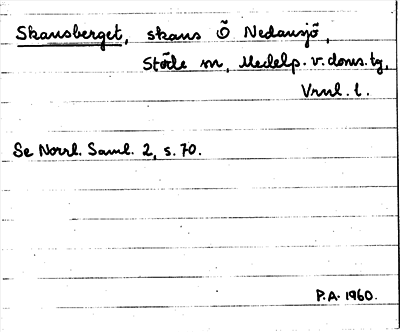 Skansberget, skans Ö Nedansjö,
Stöde sn, Medelp. v. doms. tg,
Vrnl. l.
Se Norrl. Saml. 2, s. 70.
P.A. 1960.